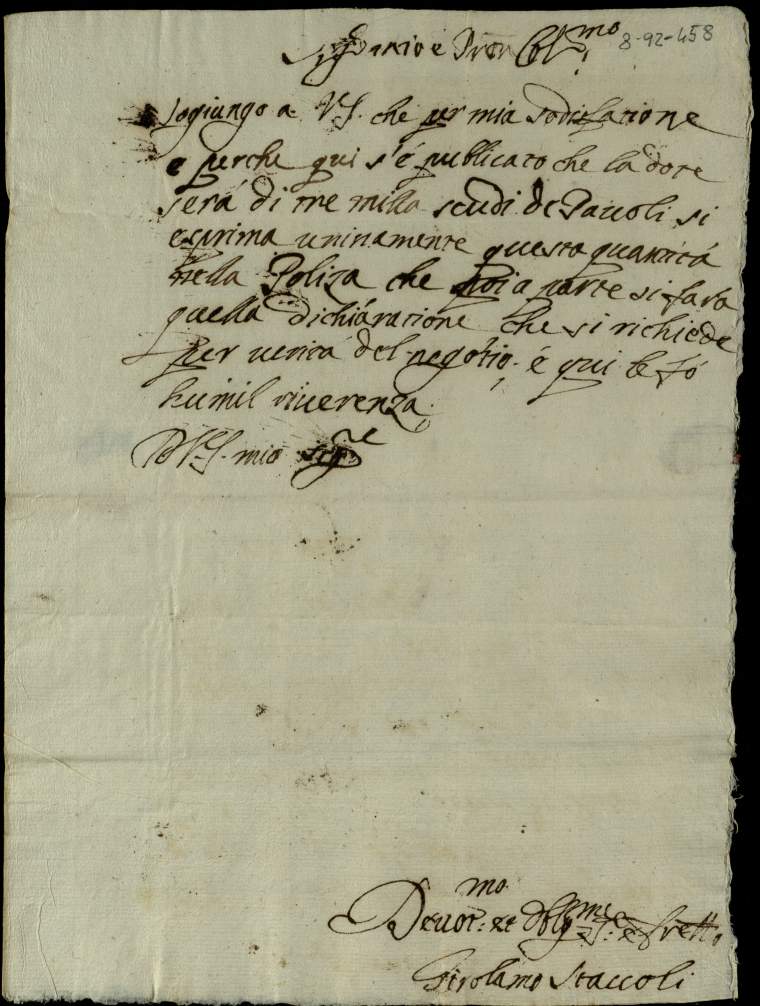 Sig.r mio e Pron Col.mo
8-92-458
Sogiungo a VS. che per mia sodisfatione
e perche qui s'é publicato che la dote
será di tre milla scudi di Pavoli si
esprima unitamente questa quantitá
nella Poliza che poi a parte si fará
quella dichiáratione che si richiede
per veritá del negotio. é qui le fó
humil riverenza
D VS. mio Sig.re
Devot.mo et Oblig.mo
Girolamo Staccoli